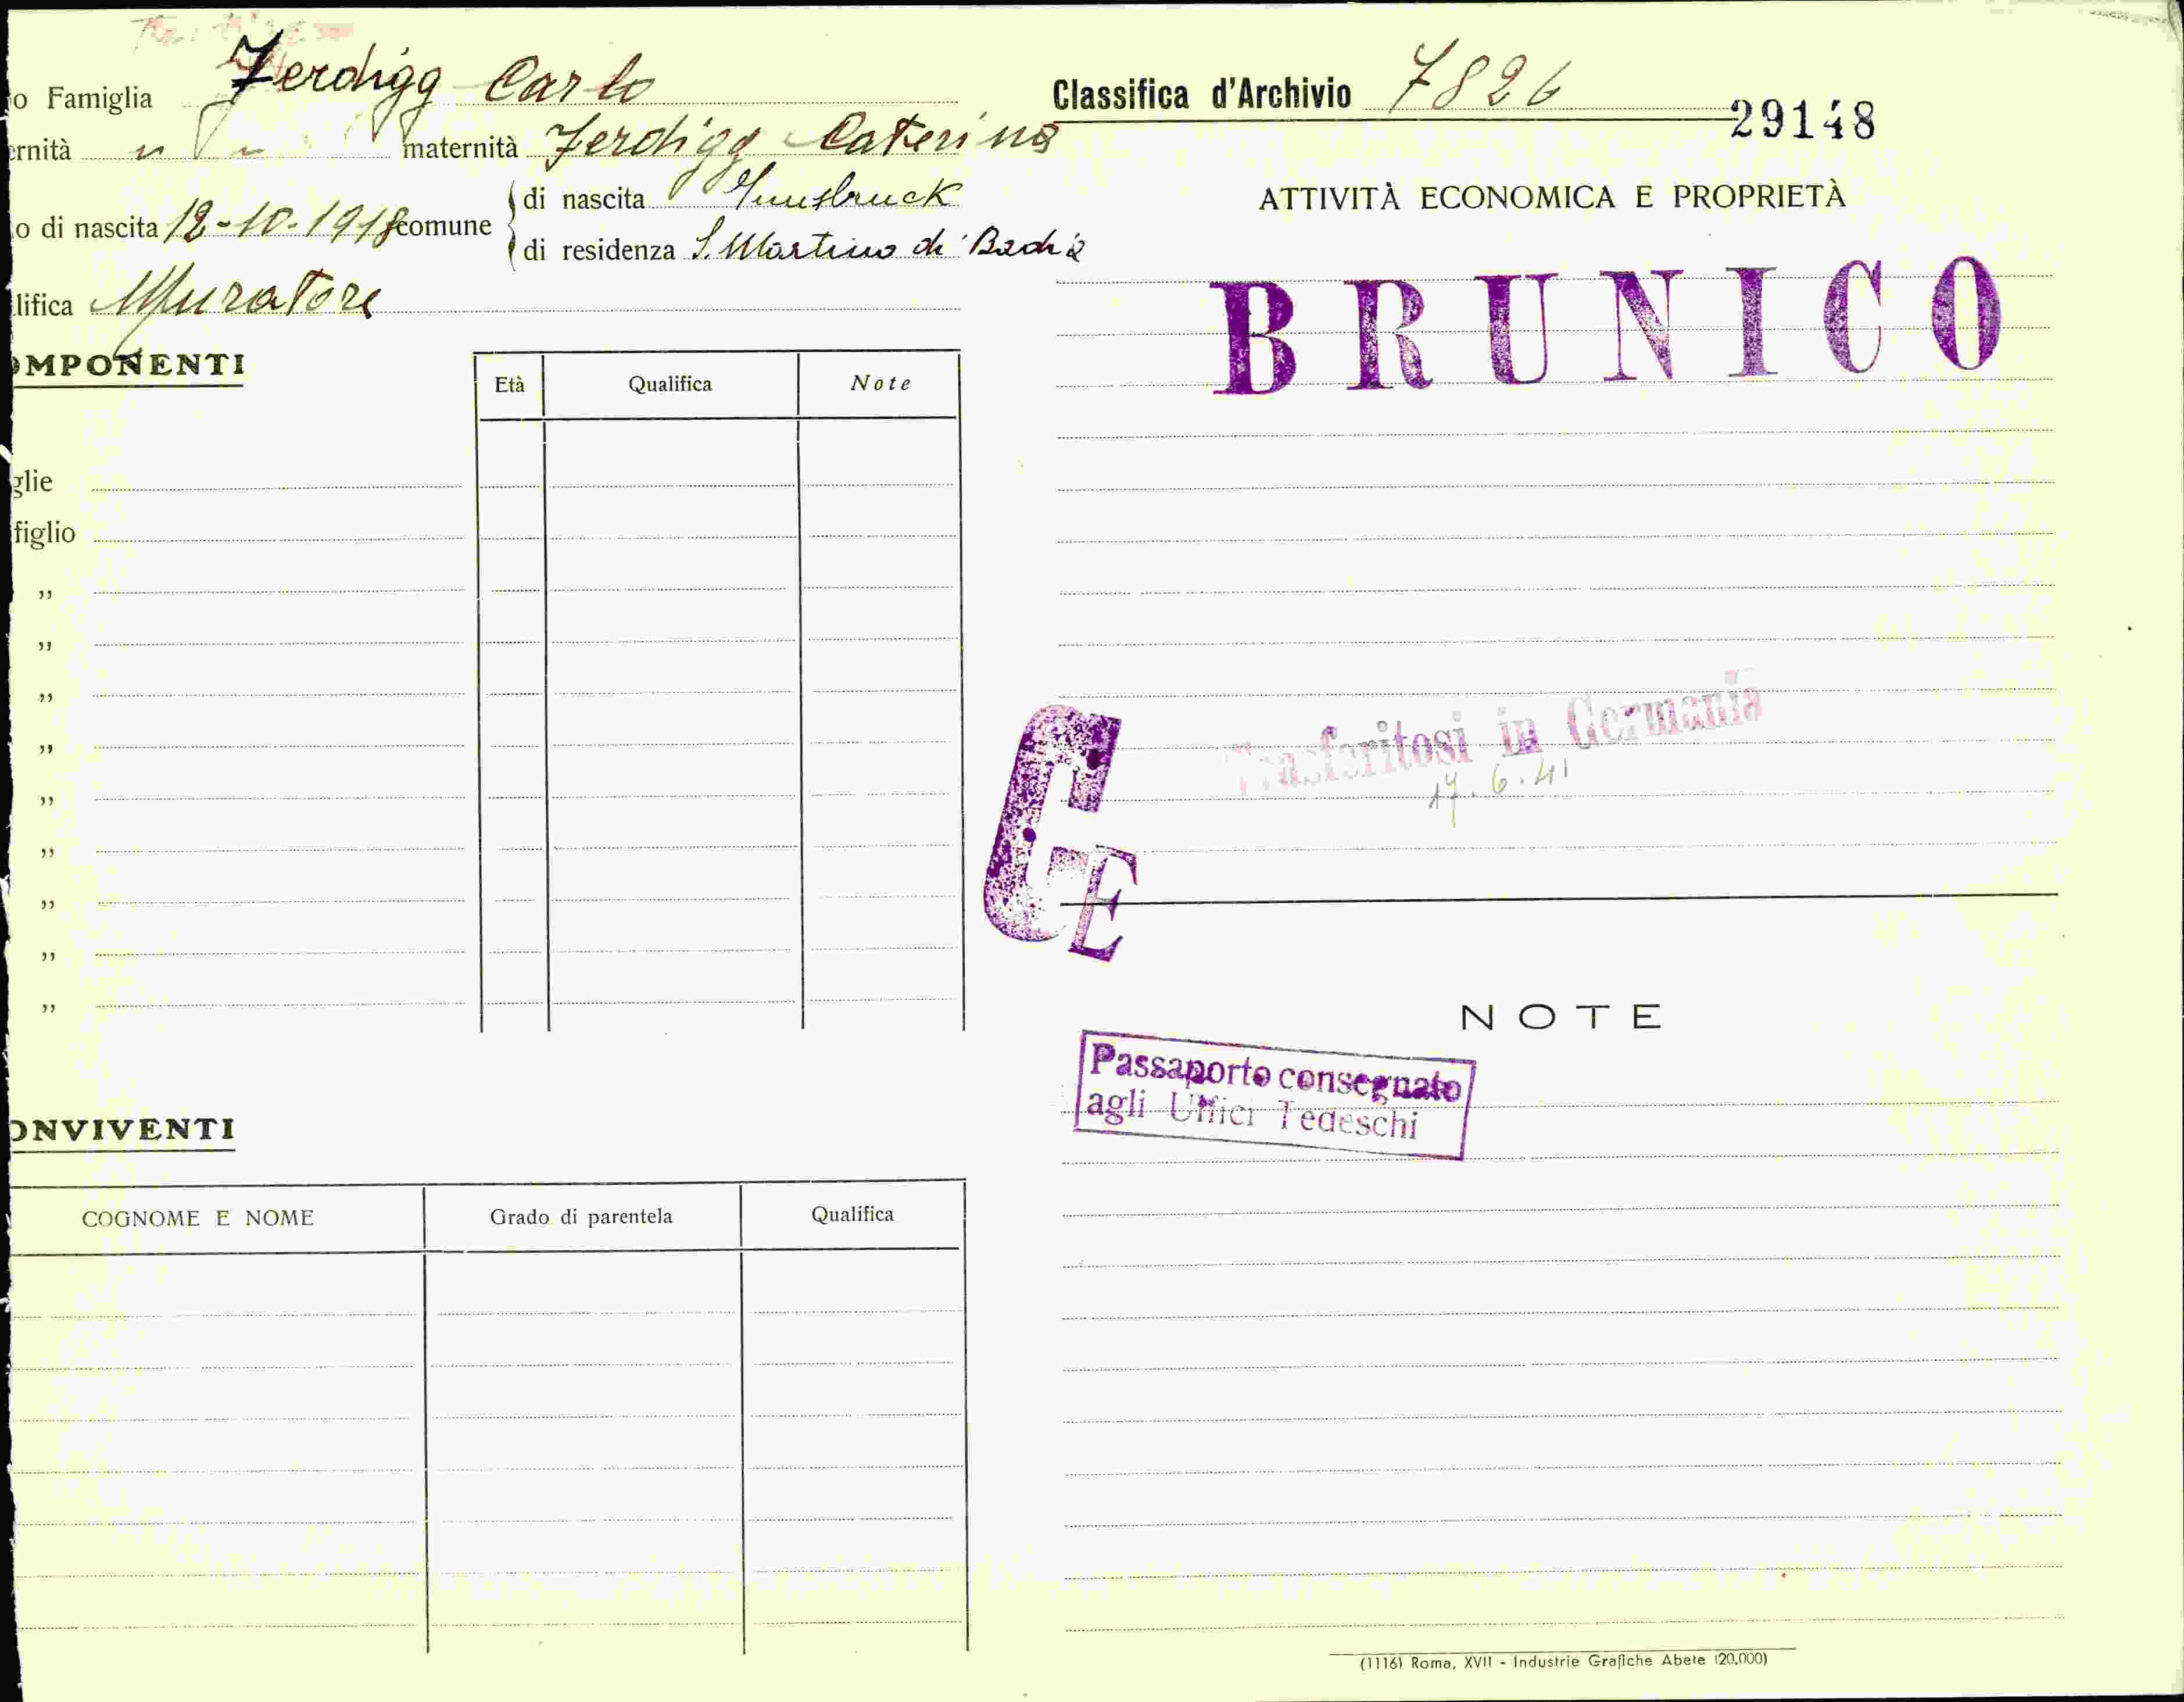 o Famiglia Ferdigg Carlo
ernità " " maternità Ferdigg Caterina
o di nascita 12-10-1918 comune
di nascita Innsbruck
di residenza S. Martino di Badia
lifica Muratore
OMPONENTI
Età Qualifica Note
glie
figlio
"
"
"
"
"
"
"
"
"
ONVIVENTI
COGNOME E NOME Grado di parentela Qualifica
Classifica d'Archivio 7826
29148
ATTIVITÀ ECONOMICA E PROPRIETÀ
BRUNICO
Trasferitosi in Germania
17.6.41
CE
NOTE
Passaporto consegnato
agli Uffici Tedeschi
(1116) Roma, XVII - Industrie Grafiche Abete (20.000)